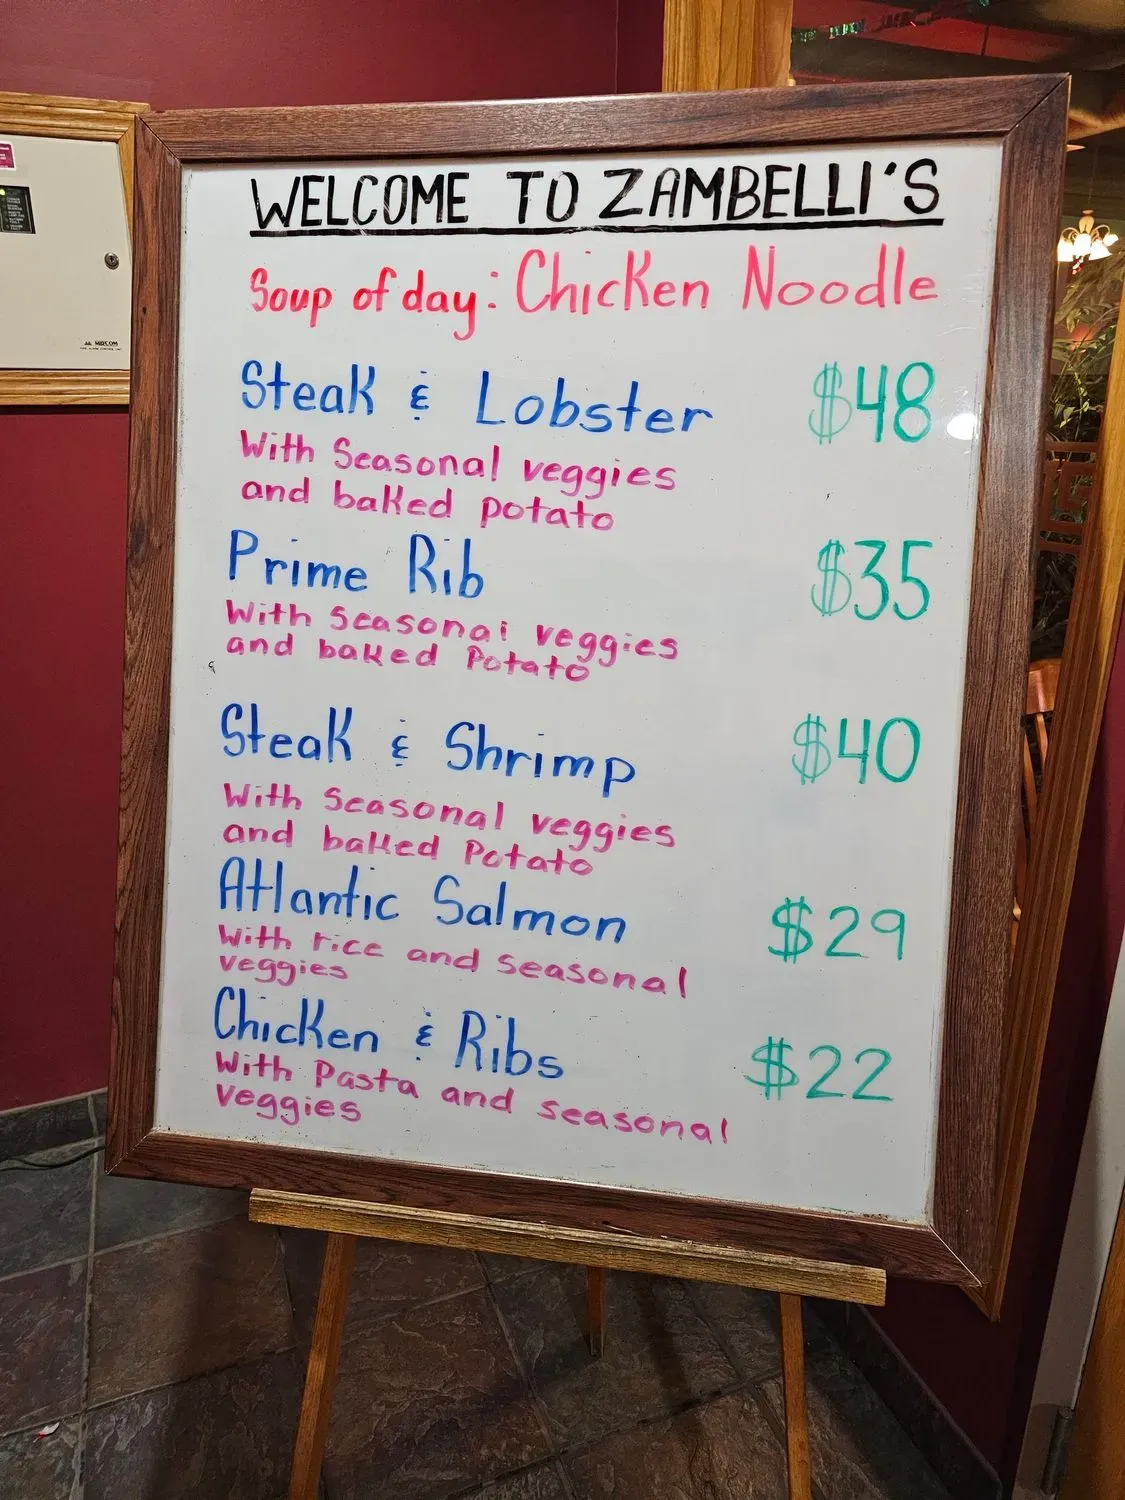 WELCOME TO ZAMBELLI'S
Soup of day: Chicken Noodle
Steak & Lobster $48
With Seasonal veggies
and baked potato
Prime Rib $35
With seasonal veggies
and baked Potato
Steak & Shrimp $40
With seasonal veggies
and baked Potato
Atlantic Salmon $29
With rice and seasonal
veggies
Chicken & Ribs $22
With Pasta and seasonal
veggies
MIRCOM